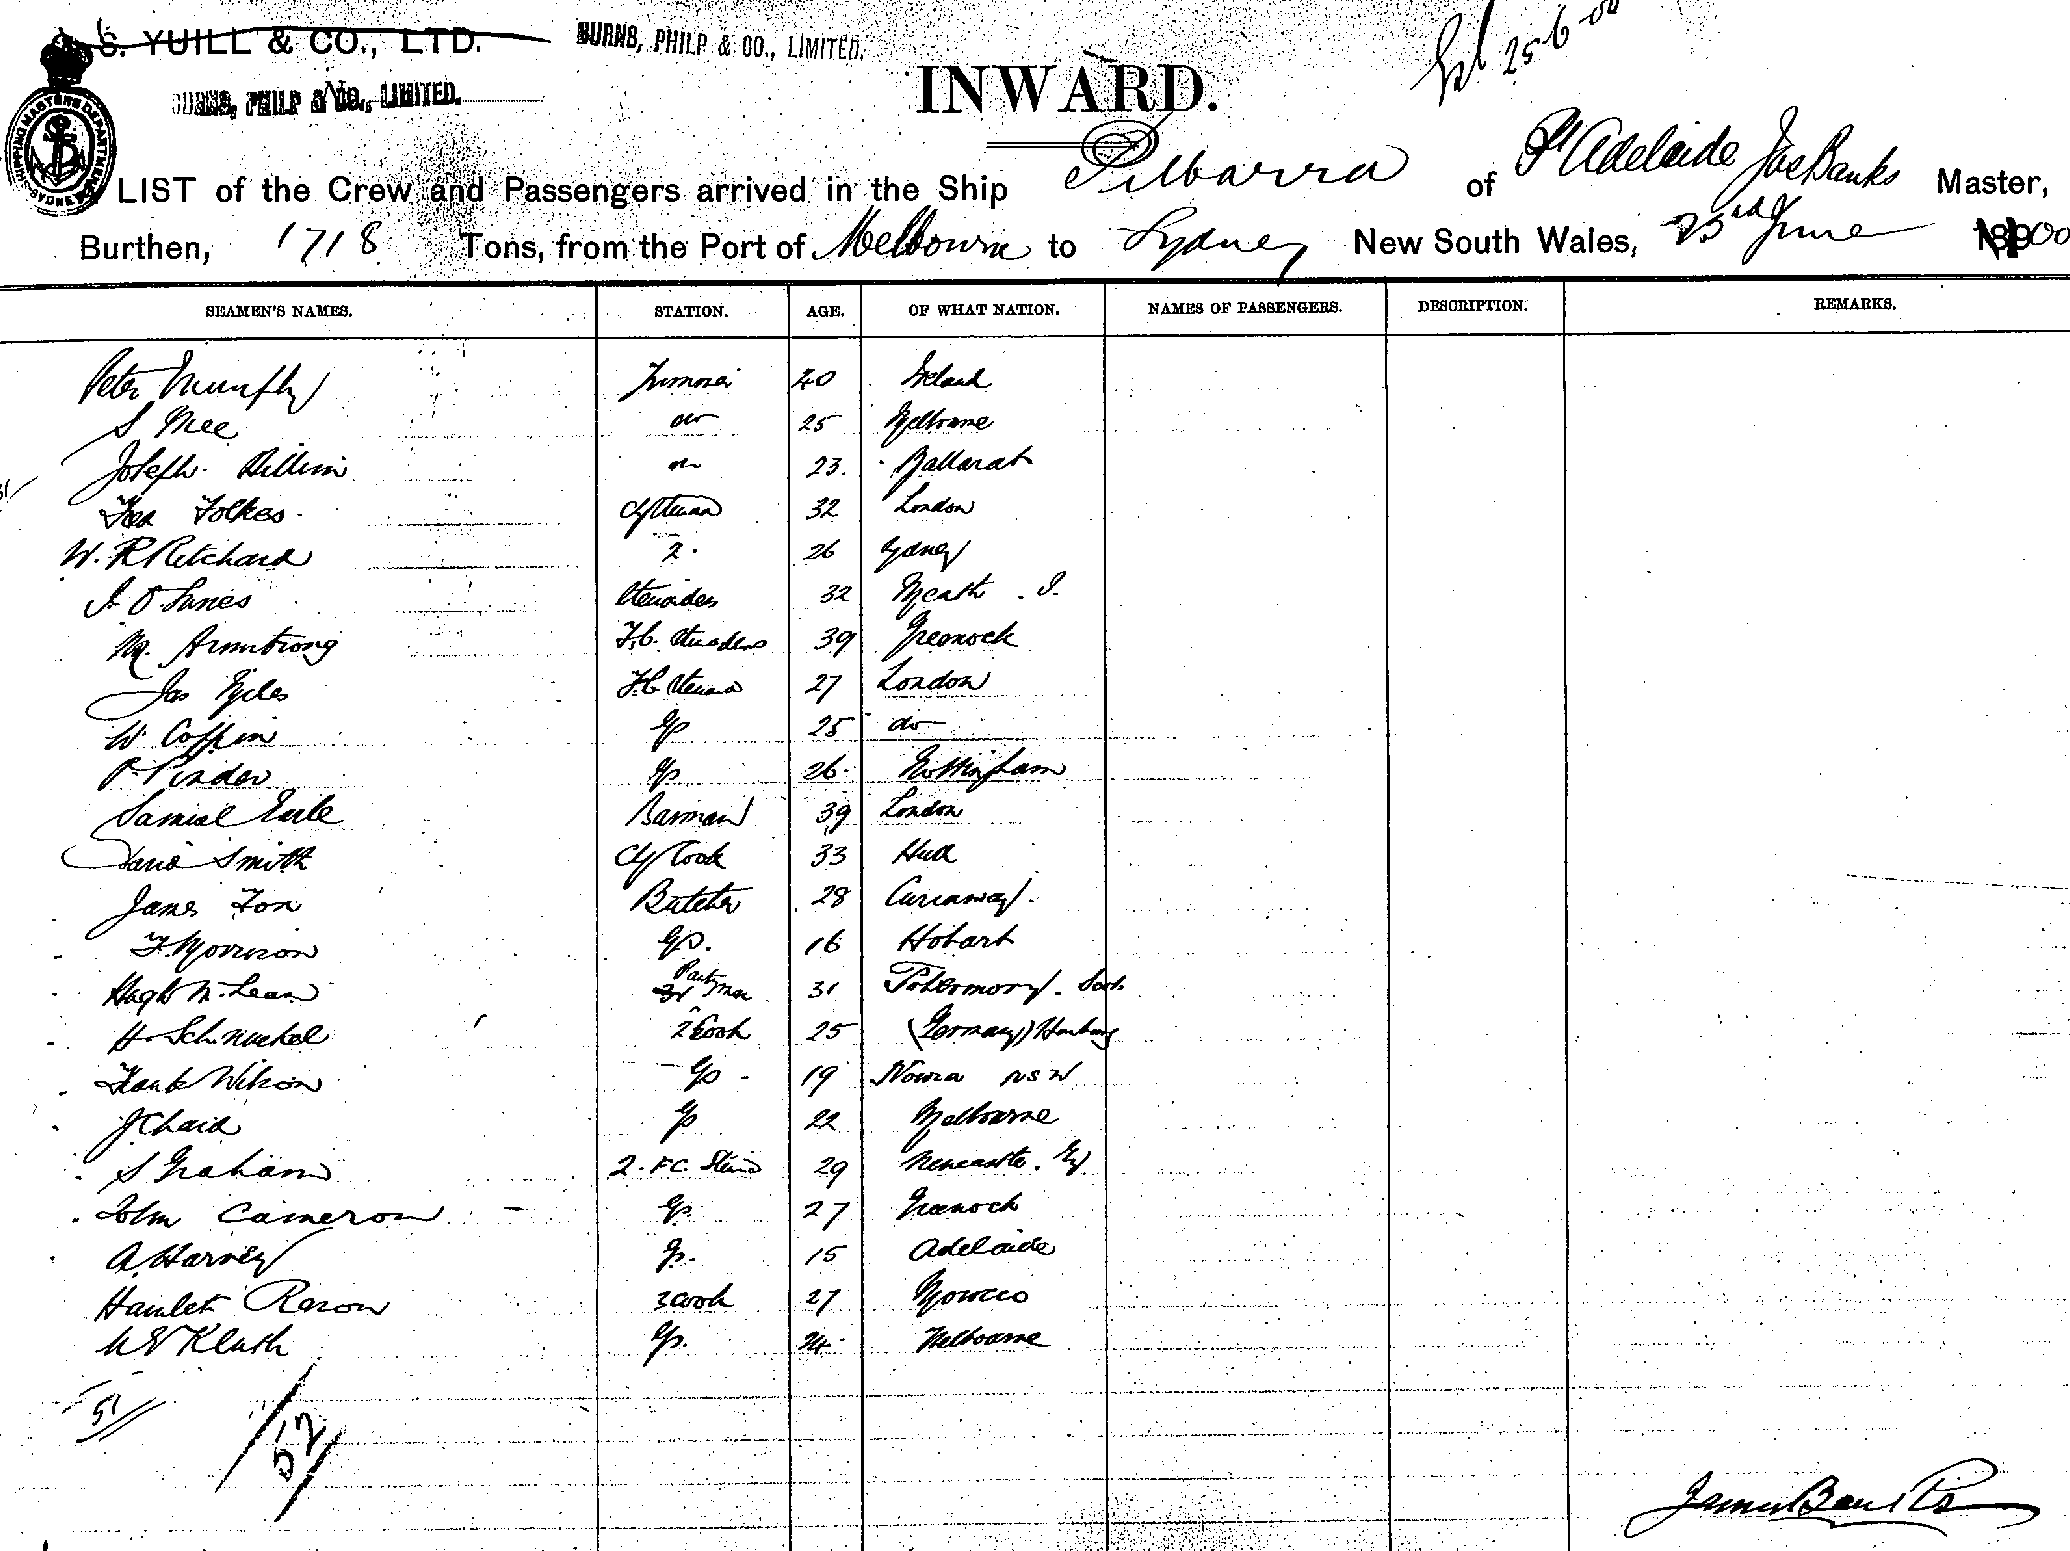 S. YUILL & CO., LTD.
BURNS, PHILP & CO., LIMITED.
BURNS, PHILP & CO., LIMITED.
25-6-00
INWARD.
SHIPPING MASTERS DEPARTMENT SYDNEY
LIST of the Crew and Passengers arrived in the Ship Pilbarra of Pt Adelaide Jas Banks Master,
Burthen, 1718 Tons, from the Port of Melbourne to Sydney New South Wales, 23rd June 1900
SEAMEN'S NAMES. STATION. AGE. OF WHAT NATION. NAMES OF PASSENGERS. DESCRIPTION. REMARKS.
Peter Murphy 40 Ireland
S Mee do 25 Melbourne
Joseph do 23. Ballarat
Folkes 32 London
W. R Pritchard 2. 26 Sydney
32 Meath . I.
M. Armstrong F.C. 39 Greenock
Jas Giles F.C. 27 London
W Coffin Gs 25 do
P. Pinder Gs 26. Nottingham
Samuel Earle Barman 39 London
David Smith Cf Cook 33 Hull
James Fox Butcher 28
F. Morrison Gs. 16 Hobart
Hugh McLean Pantryman 31 Tobermory. Scot
H. 2 Cook 25 (Germany) Hamburg
Frank Wilson Gs 19 Nowra NSW
J. Chaid Gs 22 Melbourne
S Graham 2. F.C. 29 Newcastle.
John Cameron Gs. 27 Greenock
A. Harvey Gs. 15 Adelaide
Hamlet 3 Cook 27 Morocco
Gs. 24 Melbourne
51
52
James Banks